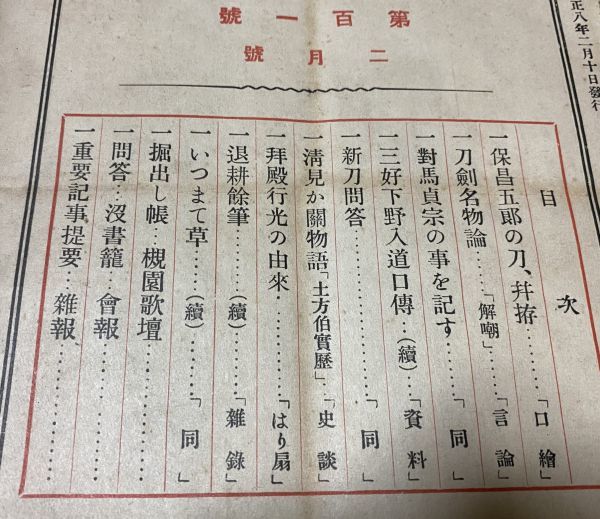 正八年二月十日發行
第百一號
二月號
目次
一保昌五郎の刀、幷拵………「口繪」
一刀劍名物論……「解嘲」「言論」
一對馬貞宗の事を記す………「同」
一三好下野入道口傳…(續)…「資料」
一新刀問答………………「同」
一淸見か關物語「土方伯實歷」…「史談」
一拜殿行光の由來………「はり扇」
一退耕餘筆……(續)……「雜錄」
一いつまて草……(續)……「同」
一掘出し帳…槻園歌壇………
一問答…沒書籠…會報………
一重要記事提要…雜報………